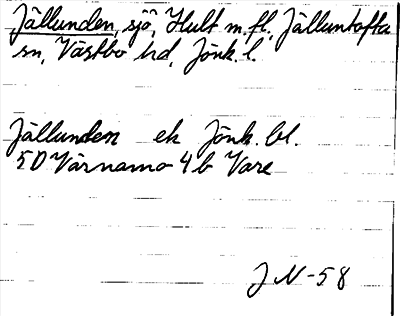 Jällunden, sjö, Hult m.fl., Jälluntofta
sn, Västbo hd, Jönk. l.
Jällunden ek Jönk. bl.
5D Värnamo 4b Vare
J N-58